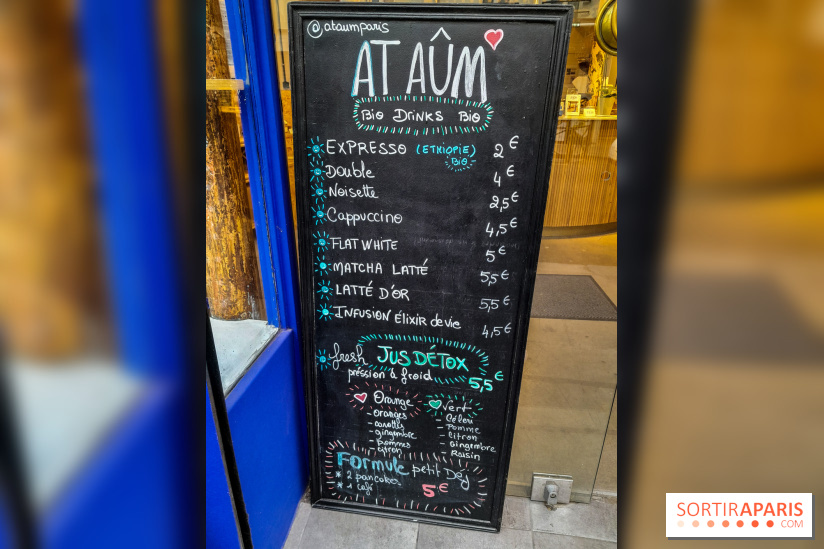 @ataumparis
AT AÛM
BIO DRINKS BIO
EXPRESSO (ETHIOPIE) 2 €
BIO
Double 4 €
Noisette 2,5 €
Cappuccino 4,5 €
FLAT WHITE 5 €
MATCHA LATTÉ 5,5 €
LATTÉ D'OR 5,5 €
INFUSION Élixir de vie 4,5 €
fresh JUS DÉTOX
préssion à froid 5,5 €
Orange
- oranges
- carottes
- gingembre
- pommes
- citron
Vert
- Céleri
- Pomme
- Citron
- Gingembre
- Raisin
FORMULE petit Déj
* 2 pancakes
* 1 café
5 €
SORTIRAPARIS
.COM